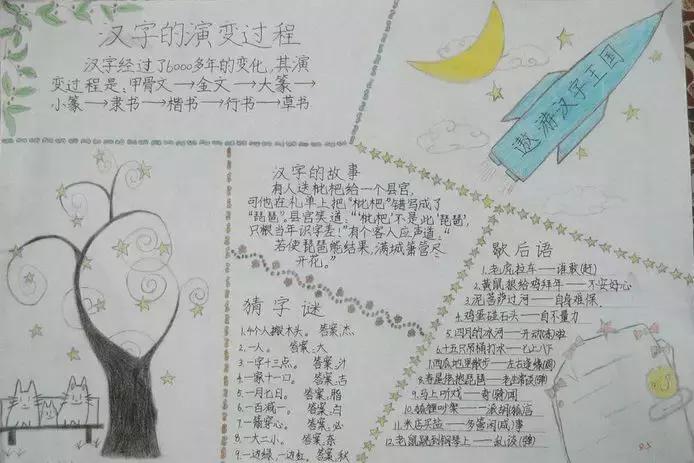 汉字的演变过程
汉字经过了6000多年的变化,其演
变过程是:甲骨文→金文→大篆→
小篆→隶书→楷书→行书→草书
遨游汉字王国
汉字的故事
有人送枇杷给一个县官,
可他在礼单上把“枇杷”错写成了
“琵琶”。县官笑道:“‘枇杷’不是此‘琵琶’,
只恨当年识字差!”有个客人应声道:“
若使琵琶能结果,满城箫管尽
开花。”
猜字谜
1.4个人搬木头。 答案:杰
2.一人。 答案:大
3.一字十三点。 答案:汁
4.一家十一口。 答案:吉
5.一月七日。 答案:脂
6.一百减一。 答案:白
7.一箭穿心。 答案:必
8.一大二小。 答案:奈
9.一边绿,一边红。 答案:秋
歇后语
1.老虎拉车——谁敢(赶)
2.黄鼠狼给鸡拜年——不安好心
3.泥菩萨过河——自身难保
4.鸡蛋碰石头——自不量力
5.四月的冰河——开动(冻)啦
6.十五只吊桶打水——七上八下
7.西瓜地里散步——左右逢缘(圆)
9.马上听戏——奇(骑)闻
11.米店买盐——多管闲(咸)事
12.老鼠跳到钢琴上——乱谈(弹)